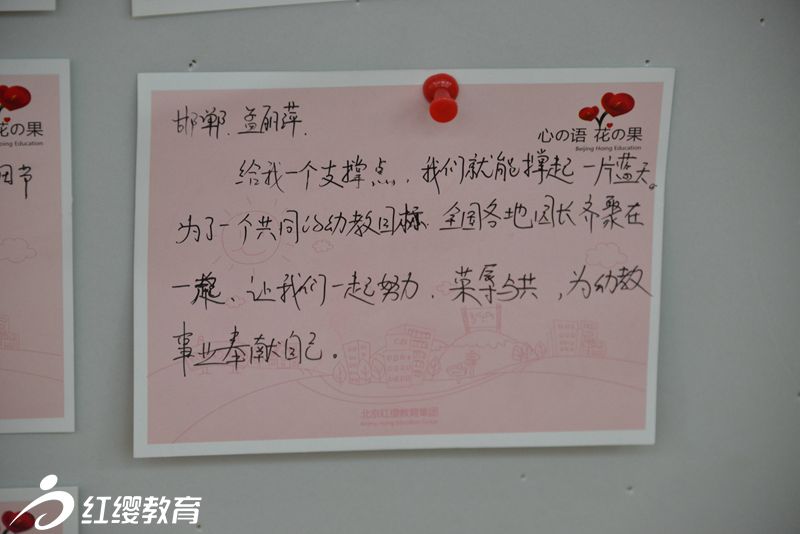 花の果
Beijing Hoing Education
因节
心の语 花の果
Beijing Hoing Education
邯郸、孟丽萍.
给我一个支撑点，我们就能撑起一片蓝天。
为了一个共同的幼教目标 全国各地园长齐聚在
一起、让我们一起努力、荣辱与共，为幼教
事业奉献自己。
北京红缨教育集团
红缨教育